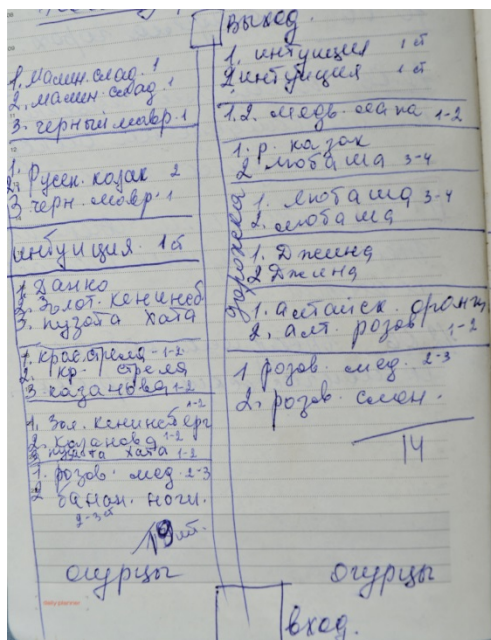 Выход.
1. малин. слад. 1
2. малин. слад 1
3. черный мавр. 1
1. Русск. козак 2
2.
3. черн. мавр. 1
интуиция. 1 ст
1. Данко
2. Золот. кенингсб
3. пузата хата
1. крас. стрела - 1-2
2. кр. стрела
3. казанова 1-2
1. Зол. кенингсберг 1-2
2. Казанова 1-2
3. пузата хата 1-2
1. розов. мед. 2-3
2 банан. ноги.
2-3 ст
19 шт.
огурцы
1. интуиция 1 ст
2 интуиция 1 ст
1. 2. медв. лапа 1-2
1. р. казак
2 любаша 3-4
дорожка
1. любаша 3-4
2. любаша
1. Джина
2 Джина
1. алтайск. оранж
2. алт. розов 1-2
1 розов. мед. 2-3
2. розов. слон.
14
огурцы
вход.
daily planner